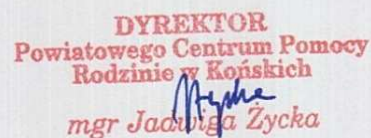 DYREKTOR
Powiatowego Centrum Pomocy
Rodzinie w Końskich
mgr Jadwiga Życka